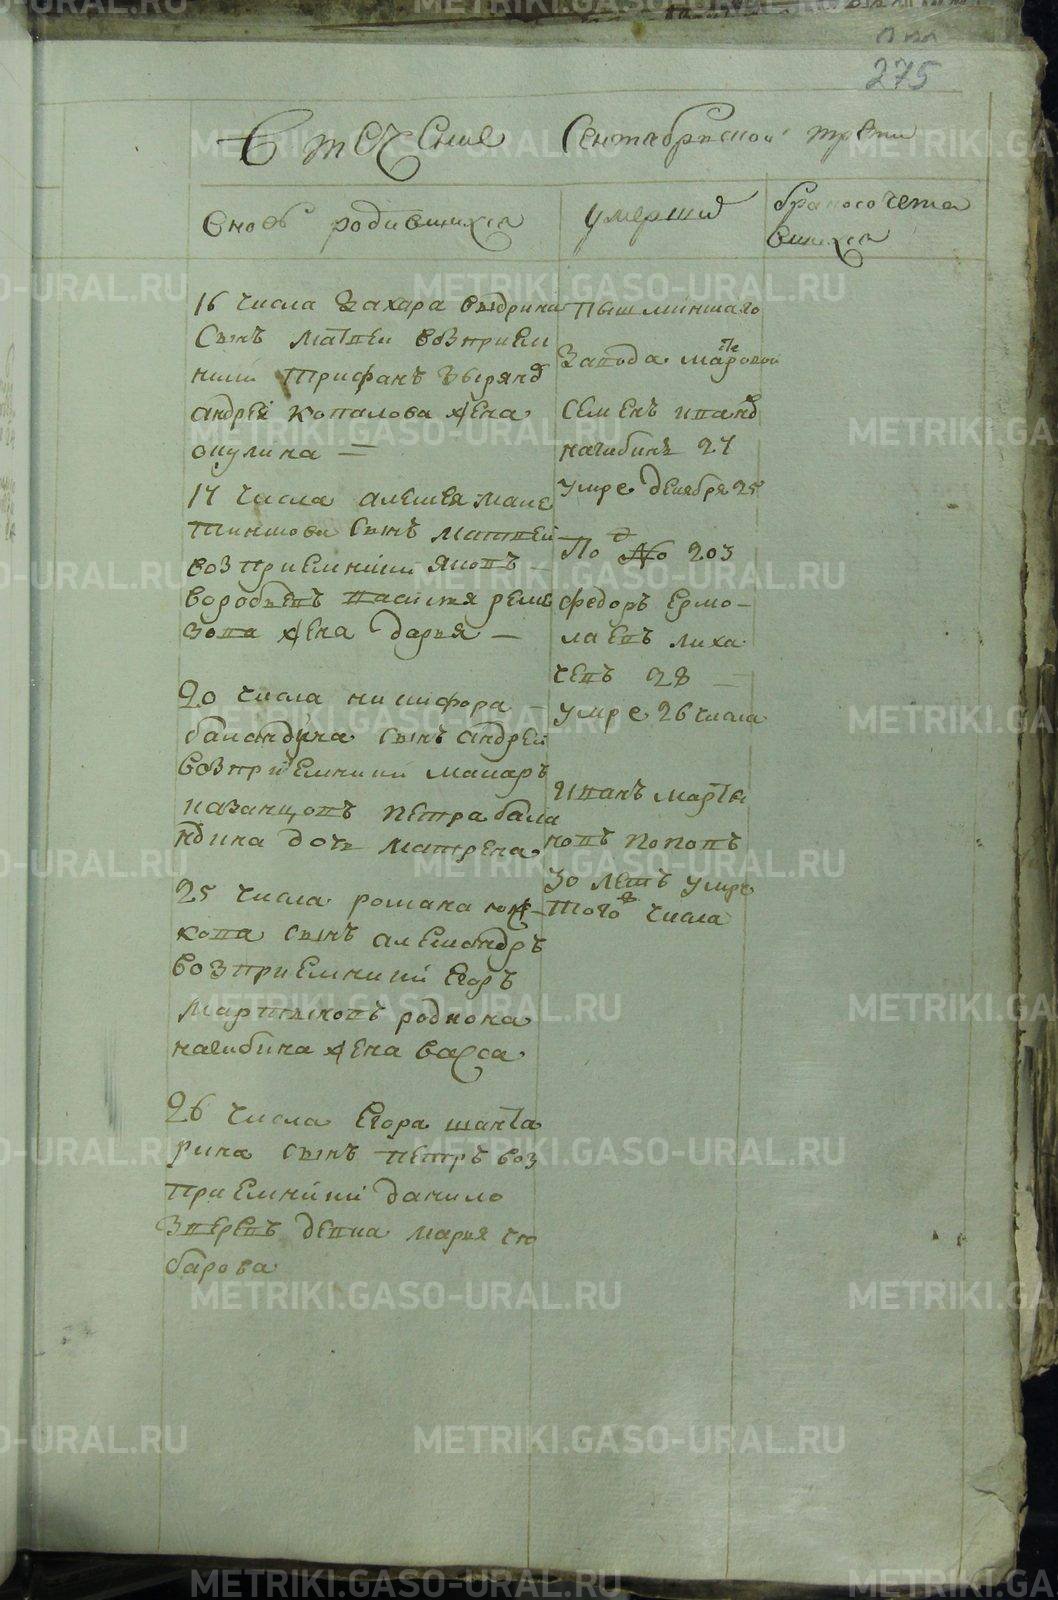 275
В течение Сентябрьской трети
вновь родившихся
умерших
бракосочета
вшихся
16 числа Захара выдрина
Сынъ матвеи возприем
ники Трифанъ
андрея копалова жена
окулина
17 числа алексея
сынъ матвей
возприемники яковъ
воробьевъ васи реме
зова жена дарья
20 числа никифора
баландина сынъ андрей
возприемники макаръ
казанцовъ петра бала
ндина дочь матрена
25 числа романа
кова сынъ александръ
возприемники Егоръ
мартыновъ родиона
нагибина жена васса
26 числа Егора
рина сынъ петръ воз
приемники данило
зверевъ девка марья чю
барова
пышминшаго
завода
семенъ иванов
нагибинъ 27
умре декабря 25
По № 203
федоръ ермо
лаевъ лиха
чевъ 28
умре 26 числа
иванъ марты
новъ поповъ
30 летъ умре
того числа
METRIKI.GASO-URAL.RU